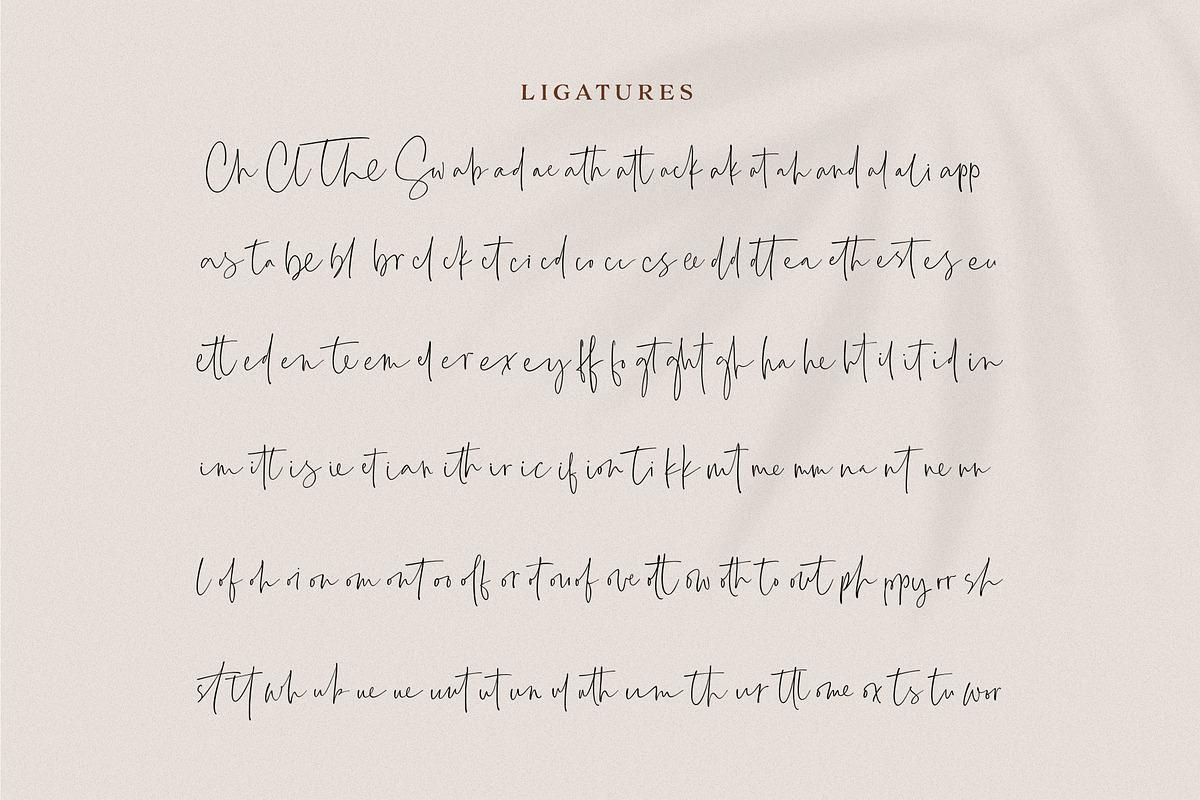 LIGATURES
Ch Cl The Sw ab ad ae ath att ack ak at ah and al ali app
as ta be bl br cl ck ct ci cd co cc cs ee dd dtt ea eth est es eu
ett ed en te em el er ex ey ff fo gt ght gh ha he ht il it id in
im itt is ie et ian ith ir ic if ion ti kk mt me mm na nt ne nn
l of oh oi on om ont oo off or ot ouof ove ott ow oth to out ph ppy rr sh
st tt wh ub ue ue unt ut un ul uth um th ur ttl ome ox ts tu wor